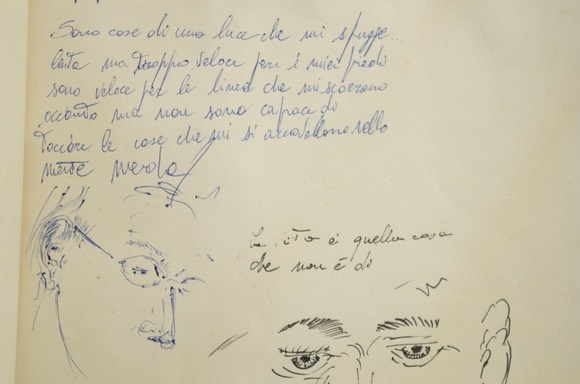 Sono cose di una luce che mi sfugge...
lenta ma troppo veloce per i miei piedi
sono veloce per le linee che mi scorrono
accanto ma non sono capace di
toccare le cose che mi si accavallano nella
mente merda
è quella cosa
che non è di